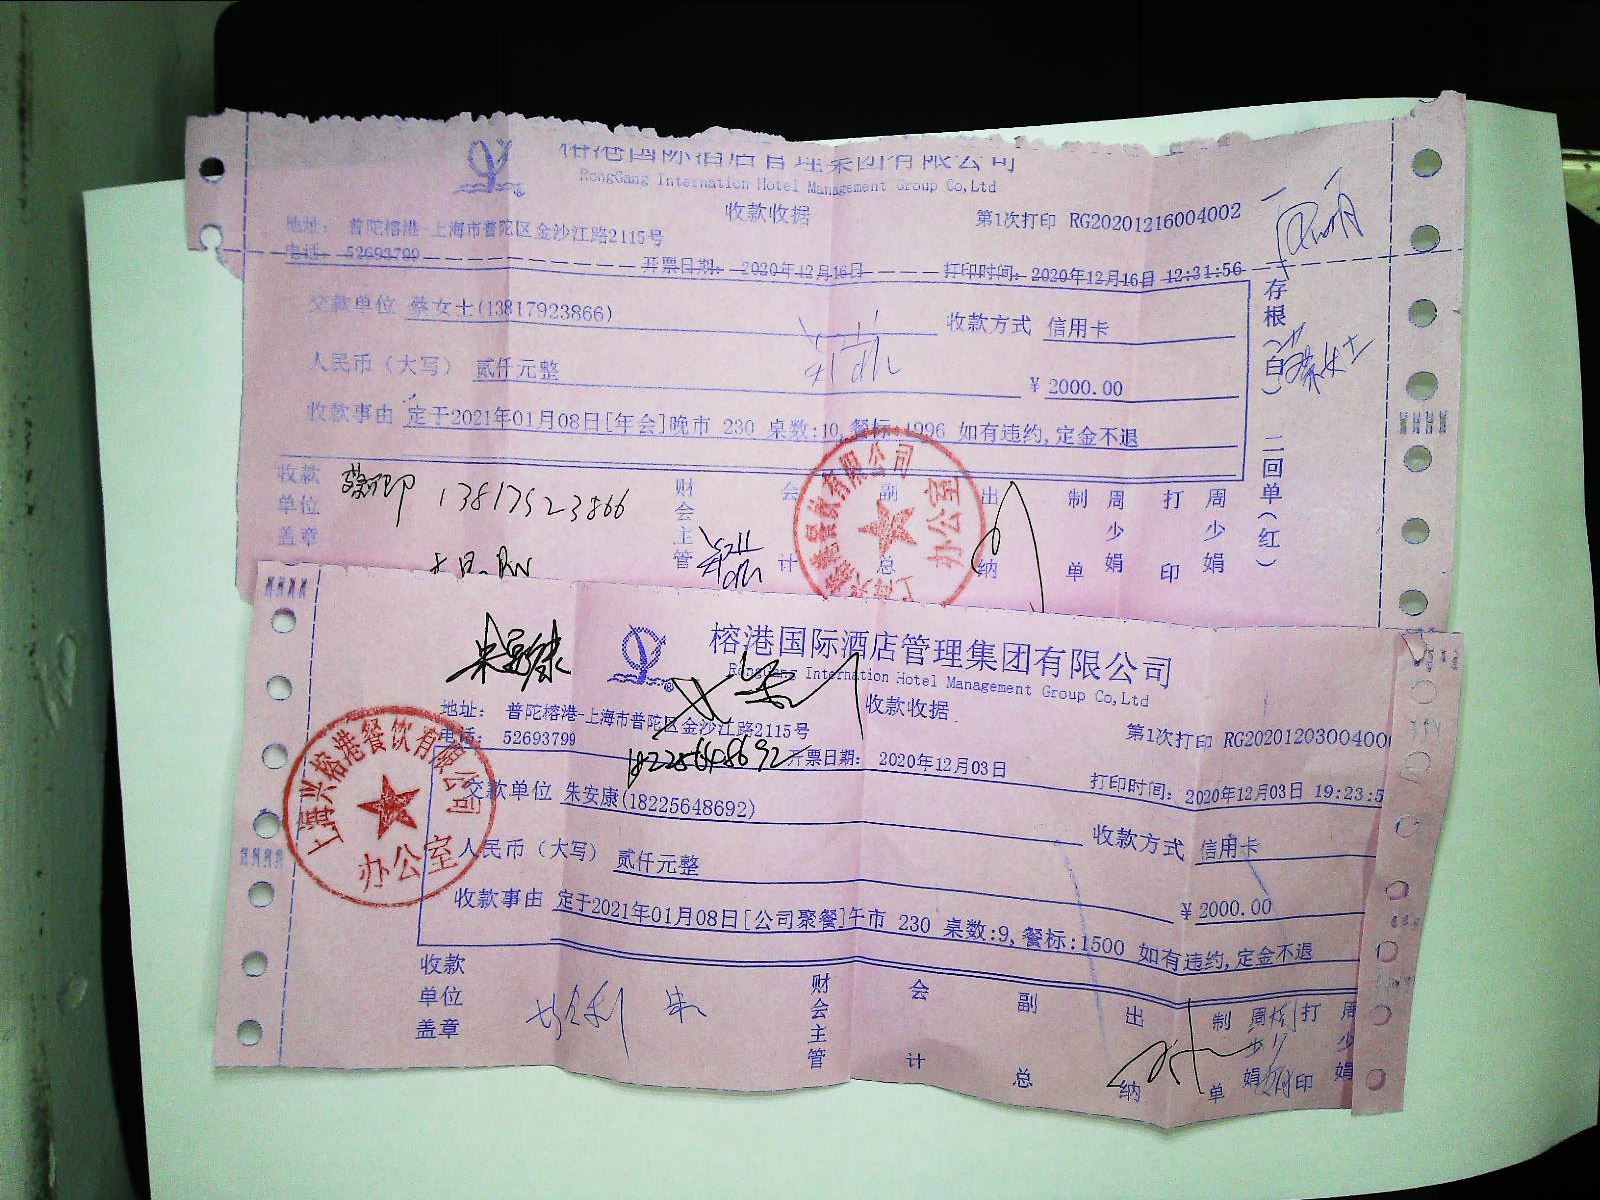 榕港国际酒店管理集团有限公司
RongGang Internation Hotel Management Group Co,Ltd
收款收据
第1次打印 RG20201216004002
地址： 普陀榕港-上海市普陀区金沙江路2115号
电话： 52693799 开票日期： 2020年12月16日 打印时间： 2020年12月16日 12:31:56
交款单位 蔡女士(13817923866) 收款方式 信用卡
人民币（大写） 贰仟元整 ￥2000.00
收款事由 定于2021年01月08日[年会]晚市 230 桌数:10,餐标:1996 如有违约,定金不退
存根（白） 二回单（红）
蔡女士
收款单位盖章 13817523866 财会主管 会计 副总 出纳 制单 周少娟 打印 周少娟
有限公司
办公室
朱安康
榕港国际酒店管理集团有限公司
RongGang Internation Hotel Management Group Co,Ltd
收款收据
第1次打印 RG2020120300400
地址： 普陀榕港-上海市普陀区金沙江路2115号
电话： 52693799 开票日期： 2020年12月03日 打印时间： 2020年12月03日 19:23:5
18225648692
交款单位 朱安康(18225648692) 收款方式 信用卡
人民币（大写） 贰仟元整 ￥2000.00
收款事由 定于2021年01月08日[公司聚餐]午市 230 桌数:9,餐标:1500 如有违约,定金不退
上海兴榕港餐饮有限公司
办公室
收款单位盖章 朱 财会主管 会计 副总 出纳 制单 周少娟 打印 周少娟